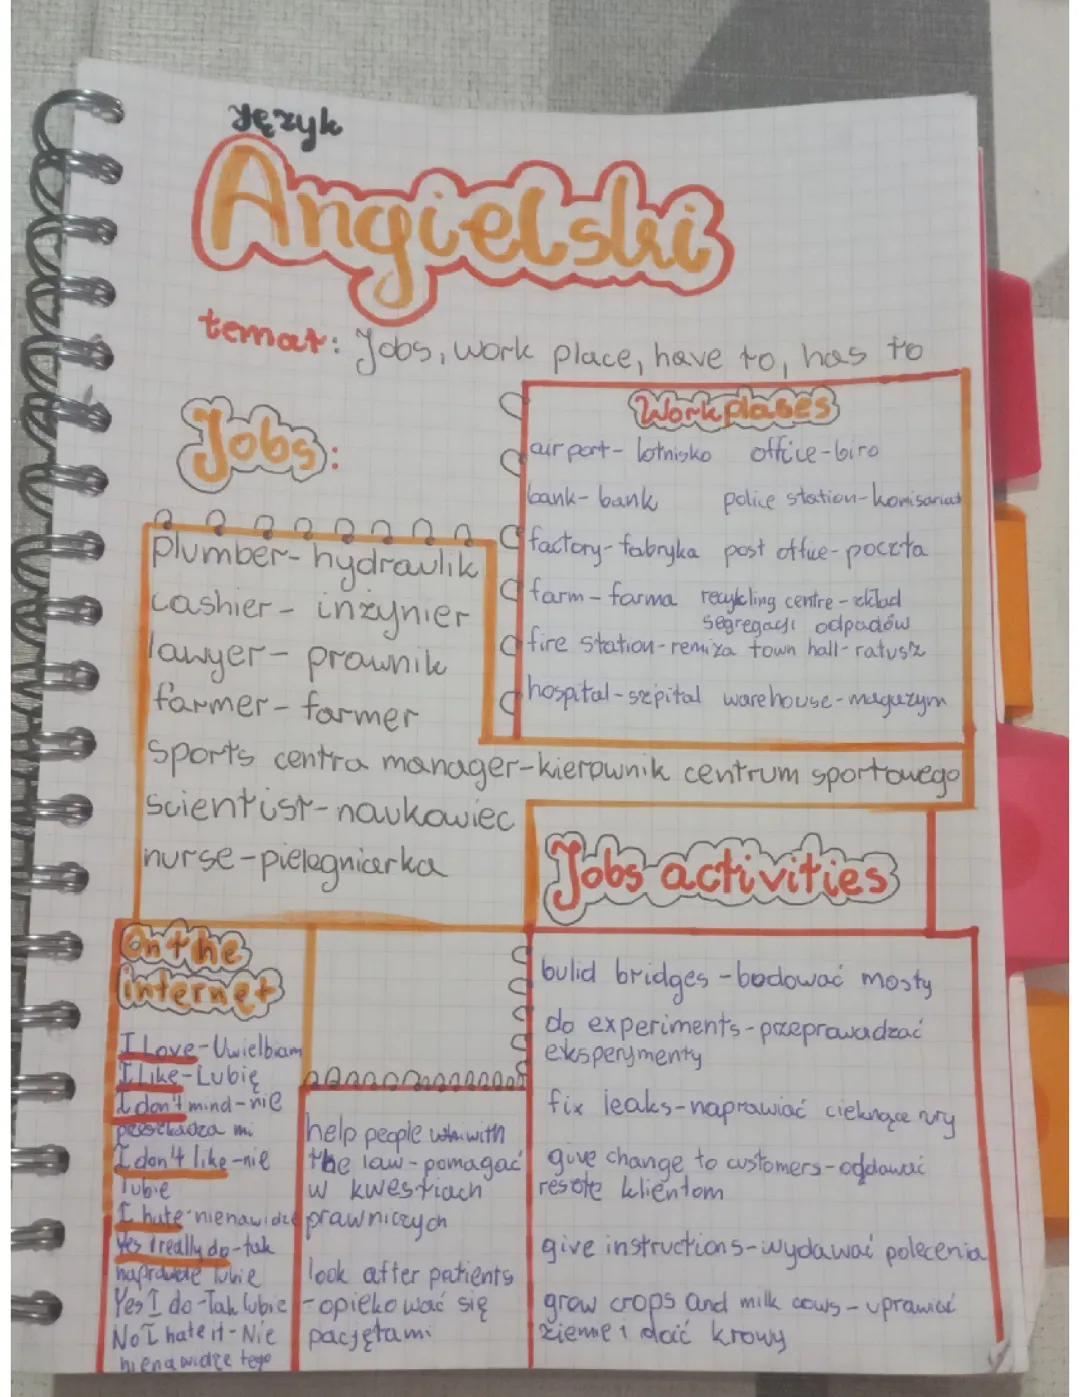 Język
Angielski
temat: Jobs, work place, have to, has to
Jobs:
plumber-hydraulik
cashier- inżynier
lawyer- prawnik
farmer- farmer
sports centra manager-kierownik centrum sportowego
scientist-naukowiec
nurse-pielęgniarka
Workplases
airport- lotnisko office-biro
bank- bank police station-komisariat
factory-fabryka post office-poczta
farm-farma recykling centre-zkład
segregacji odpadów
fire station-remiza town hall-ratusz
hospital-szpital warehouse-magazym
Jobs activities
bulid bridges -bodować mosty
do experiments-przeprowadzać
eksperymenty
fix leaks-naprawiać cieknące rury
give change to customers-oddawać
resztę klientom
give instructions-wydawać polecenia
grow crops and milk cows-uprawiać
ziemie i doić krowy
On the
internet
I Love-Uwielbiam
I like-Lubię
I don't mind-nie
przeszkadza mi
I don't like-nie
lubie
I hate-nienawidze
Yes I really do-tak
naprawde lubie
Yes I do-Tak lubie
No I hate it-Nie
nienawidze tego
help people with
the law-pomagać
w kwestiach
prawniczych
look after patients
-opiekować się
pacjętami